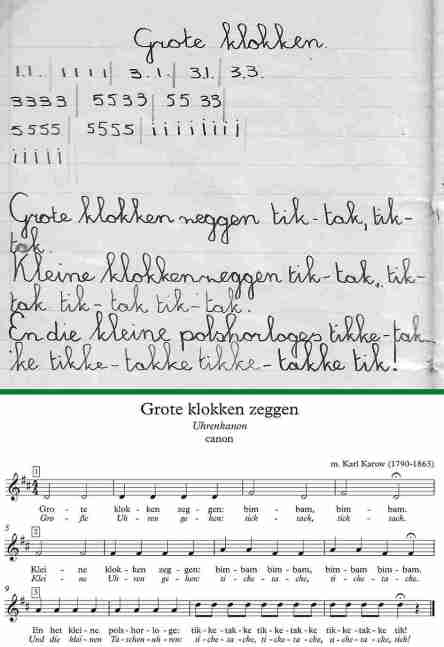 Grote klokken.
1.1. | 1 1 1 1 | 3.1. | 3.1. | 3.3.
3333 | 5533 | 55 33 |
5555 | 5555 | i i i i i i i i |
i i i i i
Grote klokken zeggen tik-tak, tik-
tak.
Kleine klokken zeggen tik-tak, tik-
tak tik-tak tik-tak.
En die kleine polshorloges tikke-tak
ke tikke-takke tikke-takke tik!
Grote klokken zeggen
Uhrenkanon
canon
m. Karl Karow (1790-1863)
1
Gro - te klok - ken zeg - gen: bim - bam, bim - bam.
Gro - ße Uh - ren ge - hen: tick - tack, tick - tack.
5
2
Klei - ne klok - ken zeg - gen: bim - bam bim - bam, bim - bam bim - bam.
Klei - ne Uh - ren ge - hen: ti - cke - ta - cke, ti - cke - ta - cke.
9
3
En het klei - ne pols - hor - lo - ge: tik - ke - tak - ke tik - ke - tak - ke tik - ke - tak - ke tik!
Und die klei - nen Ta - schen - uh - ren: ti - cke - ta - cke, ti - cke - ta - cke, ti - cke - ta - cke, tick!